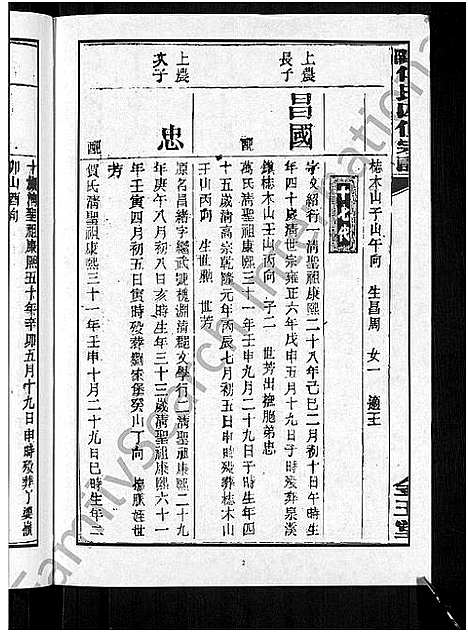 梽木山子山午向 生昌周 女一 適王
十七代
上農長子
昌國
字文紹行一清聖祖康熙二十八年己巳二月初十日午時生
年四十歲清世宗雍正六年戊申五月十九日子時殁葬泉溪
鎮梽木山壬山丙向 子二 世芳出撫胞弟忠
配
萬氏清聖祖康熙三十一年壬申九月二十九日子時生年四
十五歲清高宗乾隆元年丙辰七月初五日申時殁葬梽木山
壬山丙向 生世 世芳
上農次子
忠
原名昌緒字繼武號 淵清 文學行二清聖祖康熙二十九
年庚午八月初八日亥時生年三十三歲清聖祖康熙六十一
年壬寅四月初五日寅時殁葬劉家堡癸山丁向 撫胞姪世
芳
配
賀氏清聖祖康熙三十一年壬申十月二十九日巳時生年二
十歲清聖祖康熙五十年辛卯五月十九日申時殁葬丫婆嶺
卯山酉向
二
FamilySearch International